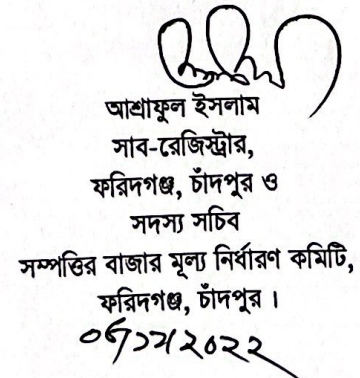 আশ্রাফুল ইসলাম
সাব-রেজিস্ট্রার,
ফরিদগঞ্জ, চাঁদপুর ও
সদস্য সচিব
সম্পত্তির বাজার মূল্য নির্ধারণ কমিটি,
ফরিদগঞ্জ, চাঁদপুর ।